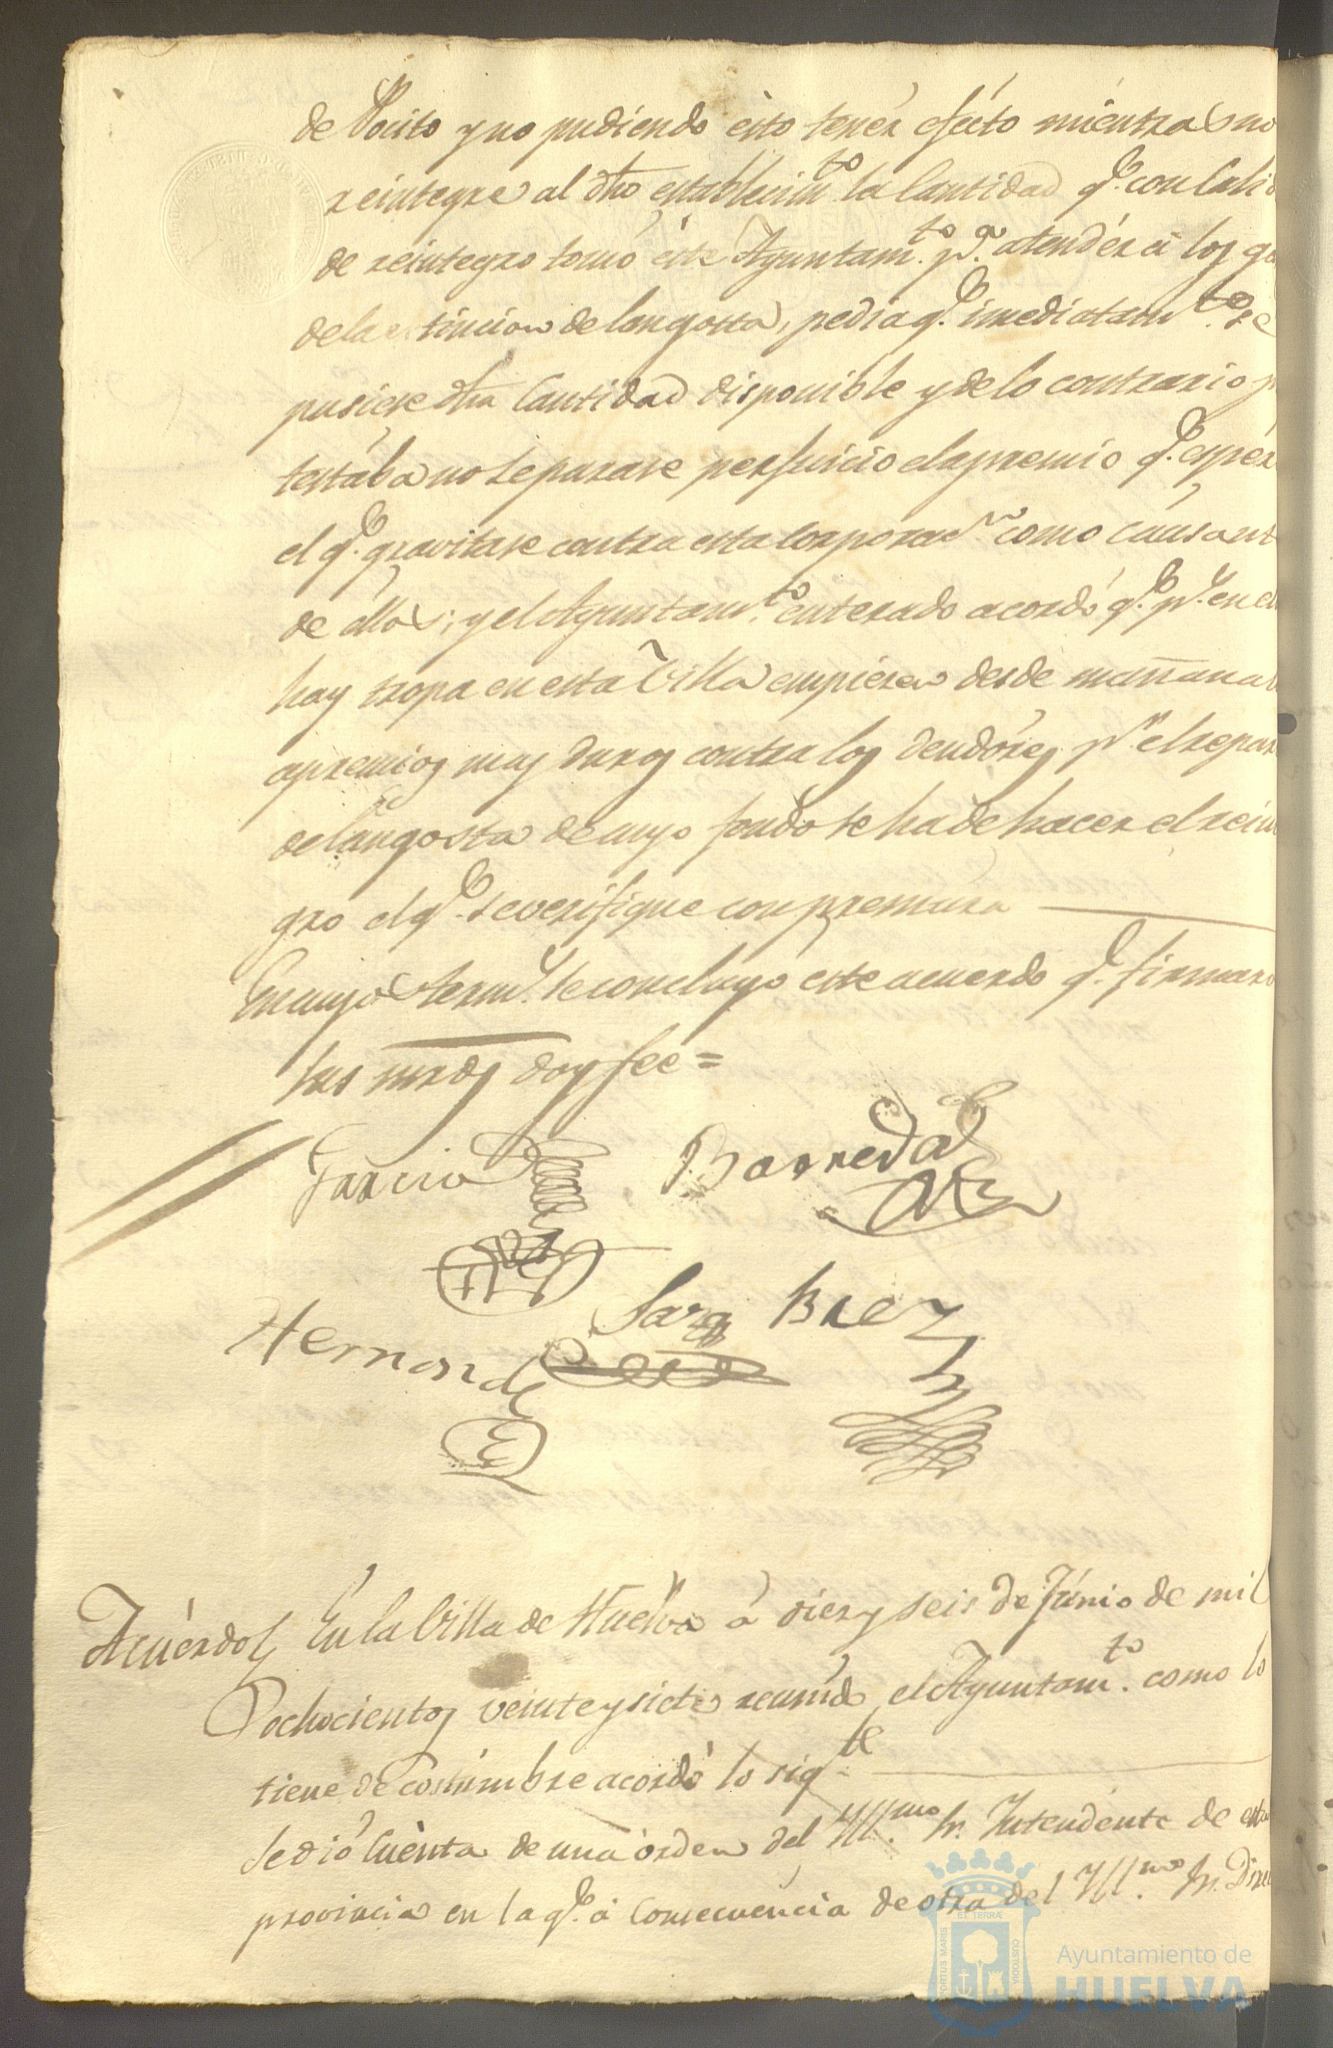 de Pocito y no pudiendo esto tener efecto mientras no
reintegre al dho establecim.to la Cantidad q.e con Calid
de reintegro tomó este Ayuntam.to p.a atendér á los ga
de la estincion de langosta, pedia q.e imediatam.te se
pusiere dha Cantidad disponible y de lo contrario p
testába no le parase perjuicio el apremio q.e esper
el q.e gravitase contra esta Corporac.n como causant
de ellos; y el Ayuntam.to enterado acordó q.e p.r en el
hay tropa en esta Villa empiecen desde mañana
apremios muy duros contra los deudóres p.r el repar
de langosta de cuyo fondo se ha de hacer el rein
gro el q.e se verifique con premura
En cuyos term.s se concluyó este acuerdo q.e firmaro
sus mrds doy fee =
Garcia Barreda
Hernand Baez
Acuérdos En la Villa de Huelva á diez y seis de Júnio de mil
ochocientos veinte y siete reunido el Ayuntam.to como lo
tiene de costúmbre acordó lo sig.te
Se dió Cuenta de una órden del Yll.mo Sr. Yntendente de esta
provincia en la q.e á Consecuencia de otra del Yll.mo Sr. Direc
PORTUS MARIS
ET TERRÆ
CUSTODIA
Ayuntamiento de
HUELVA